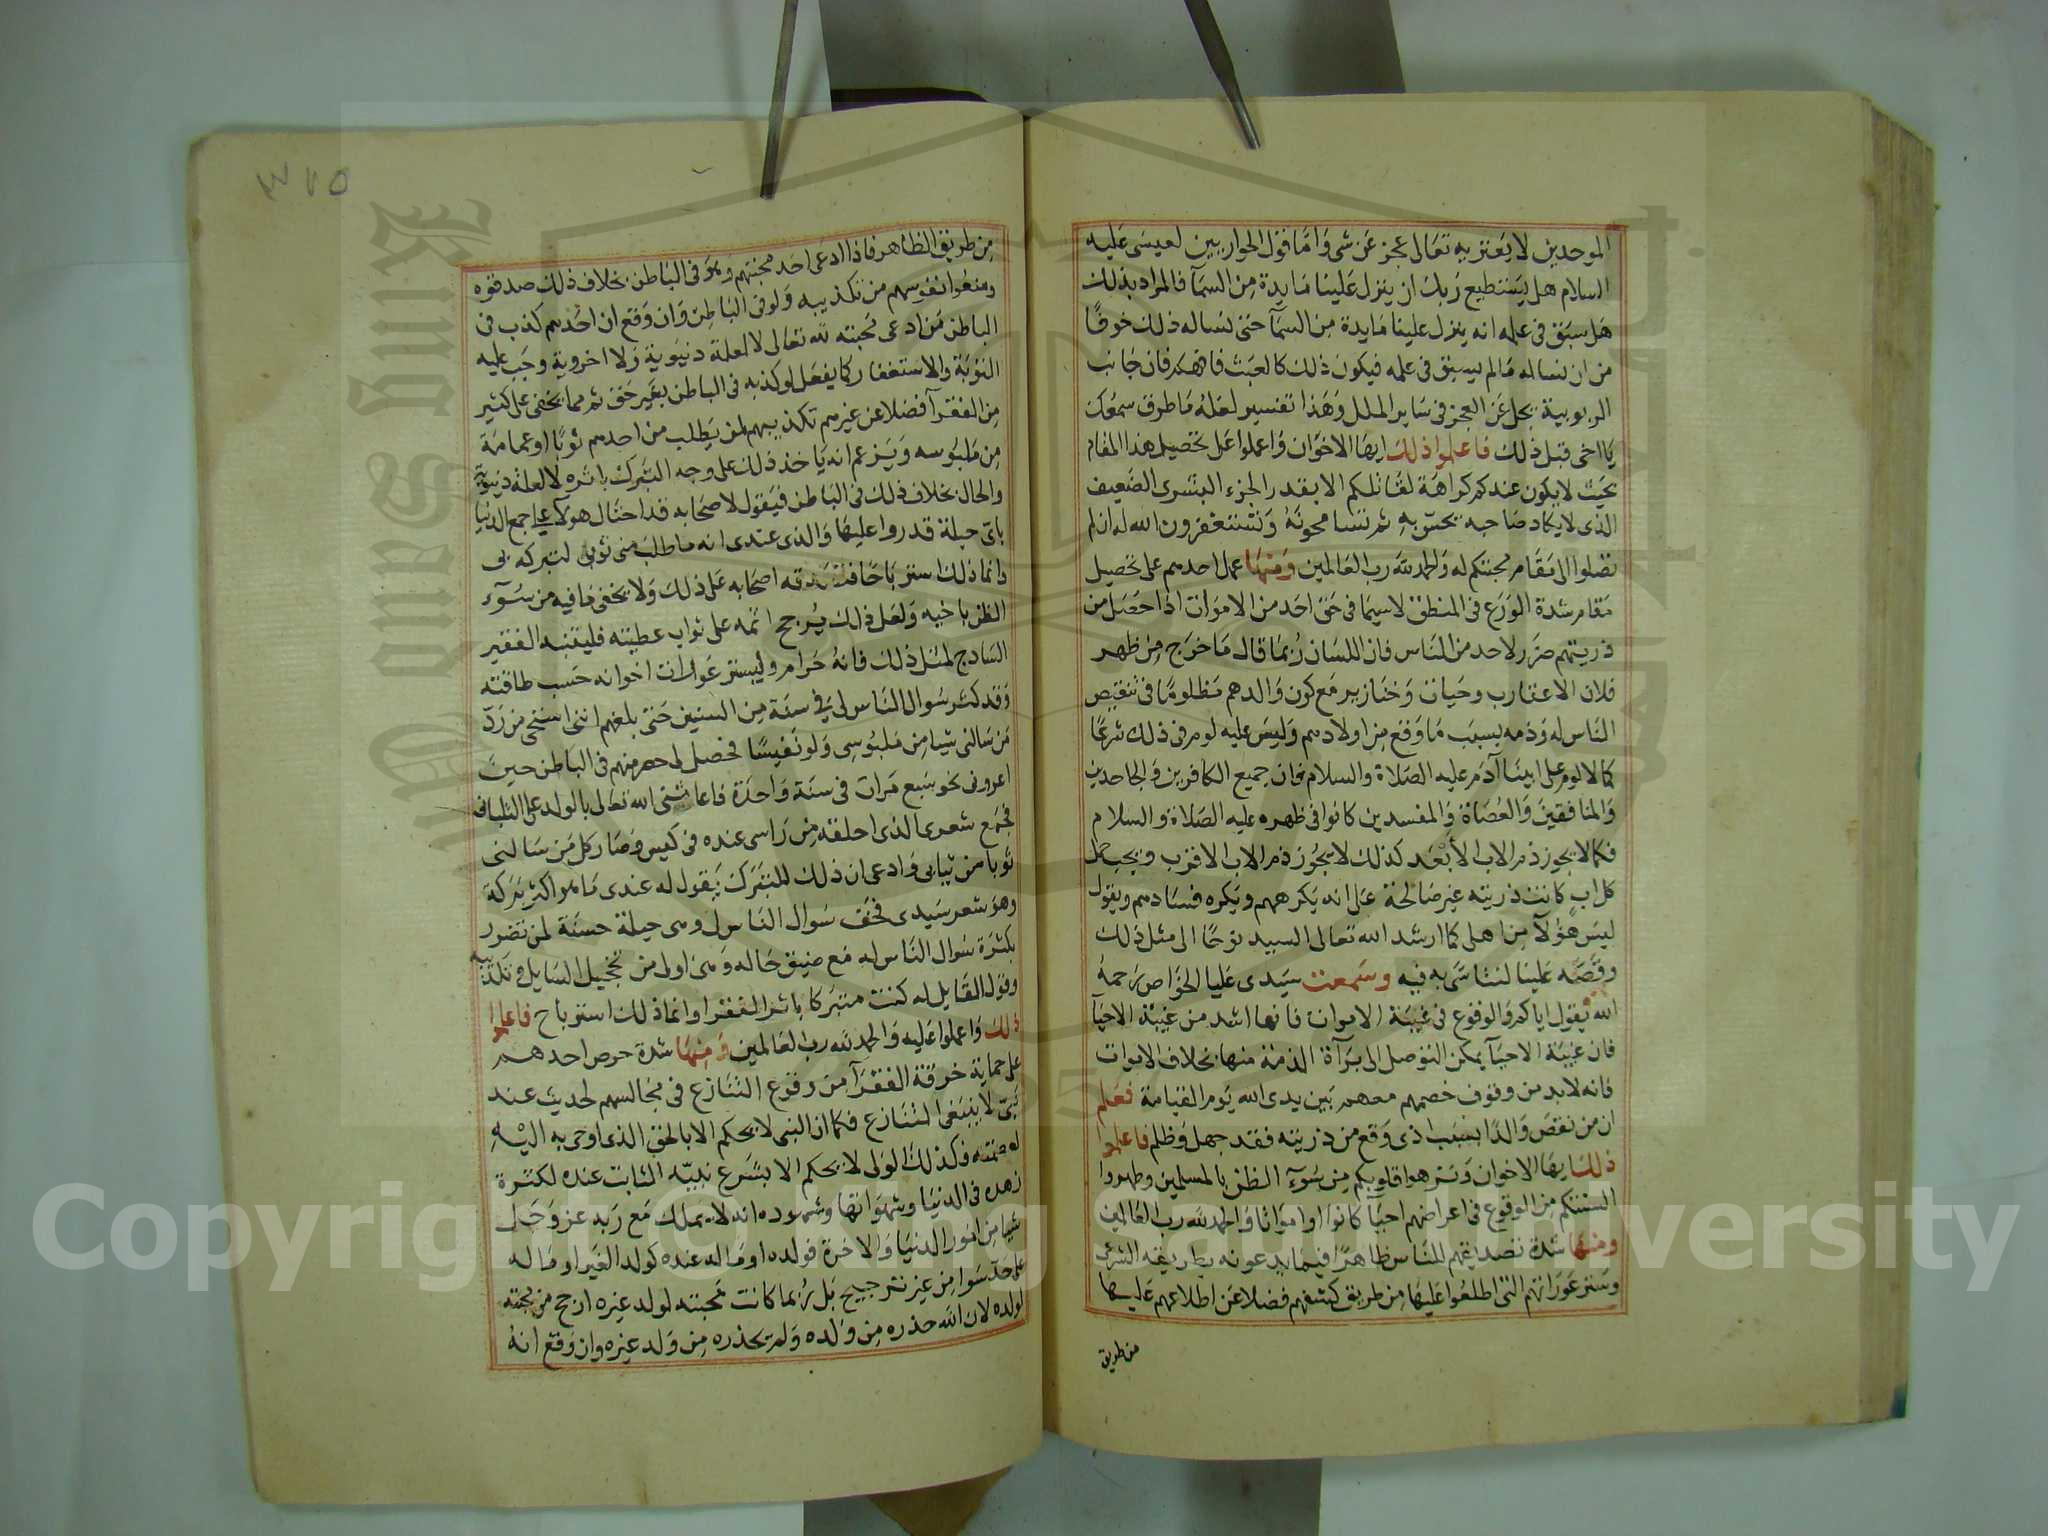 الموحدين لا يعتز به تعالى عجز عن شي واما قول الحواريين لعيسى عليه
السلام هل يستطيع ربك ان ينزل علينا مايدة من السمآ فالمراد بذلك
هل سبق في علمه انه ينزل علينا مايدة من السمآ حتى نساله ذلك خوفا
من ان نساله مالم يسبق في علمه فيكون ذلك كالعبث فافهم فان جانب
الربوبية يجل عن العجز في ساير الملل وهذا تفسير لعله ماطرق سمعك
يااخى قبل ذلك فاعلموا ذلك ايها الاخوان واعملوا على تحصيل هذا المقام
بحيث لا يكون عندكم كراهة لقاتلكم الا بقدر الجزء البشرى الضعيف
الذى لا يكاد صاحبه يحس به ثم تسامحونه وتستغفرون الله له ان لم
تصلوا الى مقام محبتكم له والحمد لله رب العالمين ومنها عمل احدهم على تحصيل
مقام شدة الورع في المنطق لاسيما في حق احد من الاموات اذا حصل من
ذريتهم ضرر لاحد من الناس فان اللسان ربما قال ما خرج من ظهر
فلان الا عقارب وحيات وخنازير مع كون والدهم مظلوما في تنقيص
الناس له وذمه بسبب ما وقع من اولادهم وليس عليه لوم في ذلك شرعا
كما لا لوم على ابينا آدم عليه الصلاة والسلام فان جميع الكافرين والجاحدين
والمنافقين والعصاة والمفسدين كانوا في ظهره عليه الصلاة والسلام
فكما لا يجوز ذم الاب الأبعد كذلك لا يجوز ذم الاب الاقرب ويجب حمل
كل اب كانت ذريته غير صالحة على انه يكرههم ويكره فسادهم ويقول
ليس هؤلآ من اهلى كما ارشد الله تعالى السيد نوحا الى مثل ذلك
وقصه علينا لنتاسى به فيه وسمعت سيدى عليا الخواص رحمه
الله يقول اياكم والوقوع في غيبة الاموات فانها اشد من غيبة الاحيآ
فان غيبة الاحيآ يمكن التوصل الى برآة الذمة منها بخلاف الاموات
فانه لابد من وقوف خصمهم معهم بين يدى الله يوم القيامة فعلم
ان من نقص والدا بسبب اذى وقع من ذريته فقد جهل وظلم فاعلموا
ذلك ايها الاخوان ونزهوا قلوبكم من سوء الظن بالمسلمين وطهروا
السنتكم من الوقوع في اعراضهم احيآ كانوا او امواتا والحمد لله رب العالمين
ومنها شدة تصديقهم للناس ظاهرا فيما يدعونه بطريقه الشرعى
وستر عوراتهم التى اطلعوا عليها من طريق كشفهم فضلا عن اطلاعهم عليها
من طريق
٣٧٥
من طريق الظاهر فاذا ادعى احد محبتهم وهو في الباطن بخلاف ذلك صدقوه
ومنعوا نفوسهم من تكذيبه ولو في الباطن وان وقع ان احدهم كذب في
الباطن من ادعى محبته لله تعالى لا لعلة دنيوية ولا اخروية وجب عليه
التوبة والاستغفار كما يفعل لو كذبه في الباطن بغير حق ثم مما يخفى على كثير
من الفقرآ فضلا عن غيرهم تكذيبهم لمن يطلب من احدهم ثوبا او عمامة
من ملبوسه ويزعم انه ياخذ ذلك على وجه التبرك باثره لا لعلة دنيوية
والحال بخلاف ذلك في الباطن فيقول لاصحابه قد احتال هولآ على جمع الدنيا
باى حيلة قدروا عليها والذى عندى انه ما طلب منى ثوبى لتبركه بى
وانما ذلك استرباحا اصحابه على ذلك ولا يخفى مافيه من سوء
الظن باخيه ولعل ذلك يرجح اثمه على ثواب عطيته فليتنبه الفقير
السادج لمثل ذلك فانه حرام وليستر عورات اخوانه حسب طاقته
وقد كثر سوال الناس لى في سنة من السنين حتى بلغهم اننى استحى من رد
من سالنى شيا من ملبوسى ولو نفيسا فحصل لى حصر منهم في الباطن حين
اعرونى نحو سبع مرات في سنة واحدة فاعاننى الله تعالى بالولد على التلباني
فجمع شعرى الذى احلقه من راسى عنده في كيس وصار كل من سالنى
ثوبا من ثيابى وادعى ان ذلك للتبرك يقول له عندى ما هو اكثر بركة
وهو شعر سيدى فخف سوال الناس لى وهى حيلة حسنة لمن تضرر
بكثرة سوال الناس له مع ضيق حاله وهى اولى من تخجيل السايل وتكذيبه
وقول القايل له كنت متبركا باثر الفقرا وانما ذلك استرباح فاعلموا
ذلك واعملوا عليه والحمد لله رب العالمين ومنها شدة حرص احدهم
على حماية خرقة الفقرآ من وقوع التنازع في مجالسهم لحديث عند
نبى لا ينبغى التنازع فكما ان النبى لا يحكم الا بالحق الذى اوحى به اليه
لعصمته فكذلك الولى لا يحكم الا بشرع نبيه الثابت عنده لكثرة
زهده في الدنيا وشهواتها وشهوده انه لا يملك مع ربه عز وجل
شيا من امور الدنيا والاخرة فولده او ماله عنده كولد الغير او ماله
على حد سوا من غير ترجيح بل ربما كانت محبته لولد غيره ارجح من محبته
لولده لان الله حذره من ولده ولم يحذره من ولد غيره وان وقع انه
Copyright © King Saud University